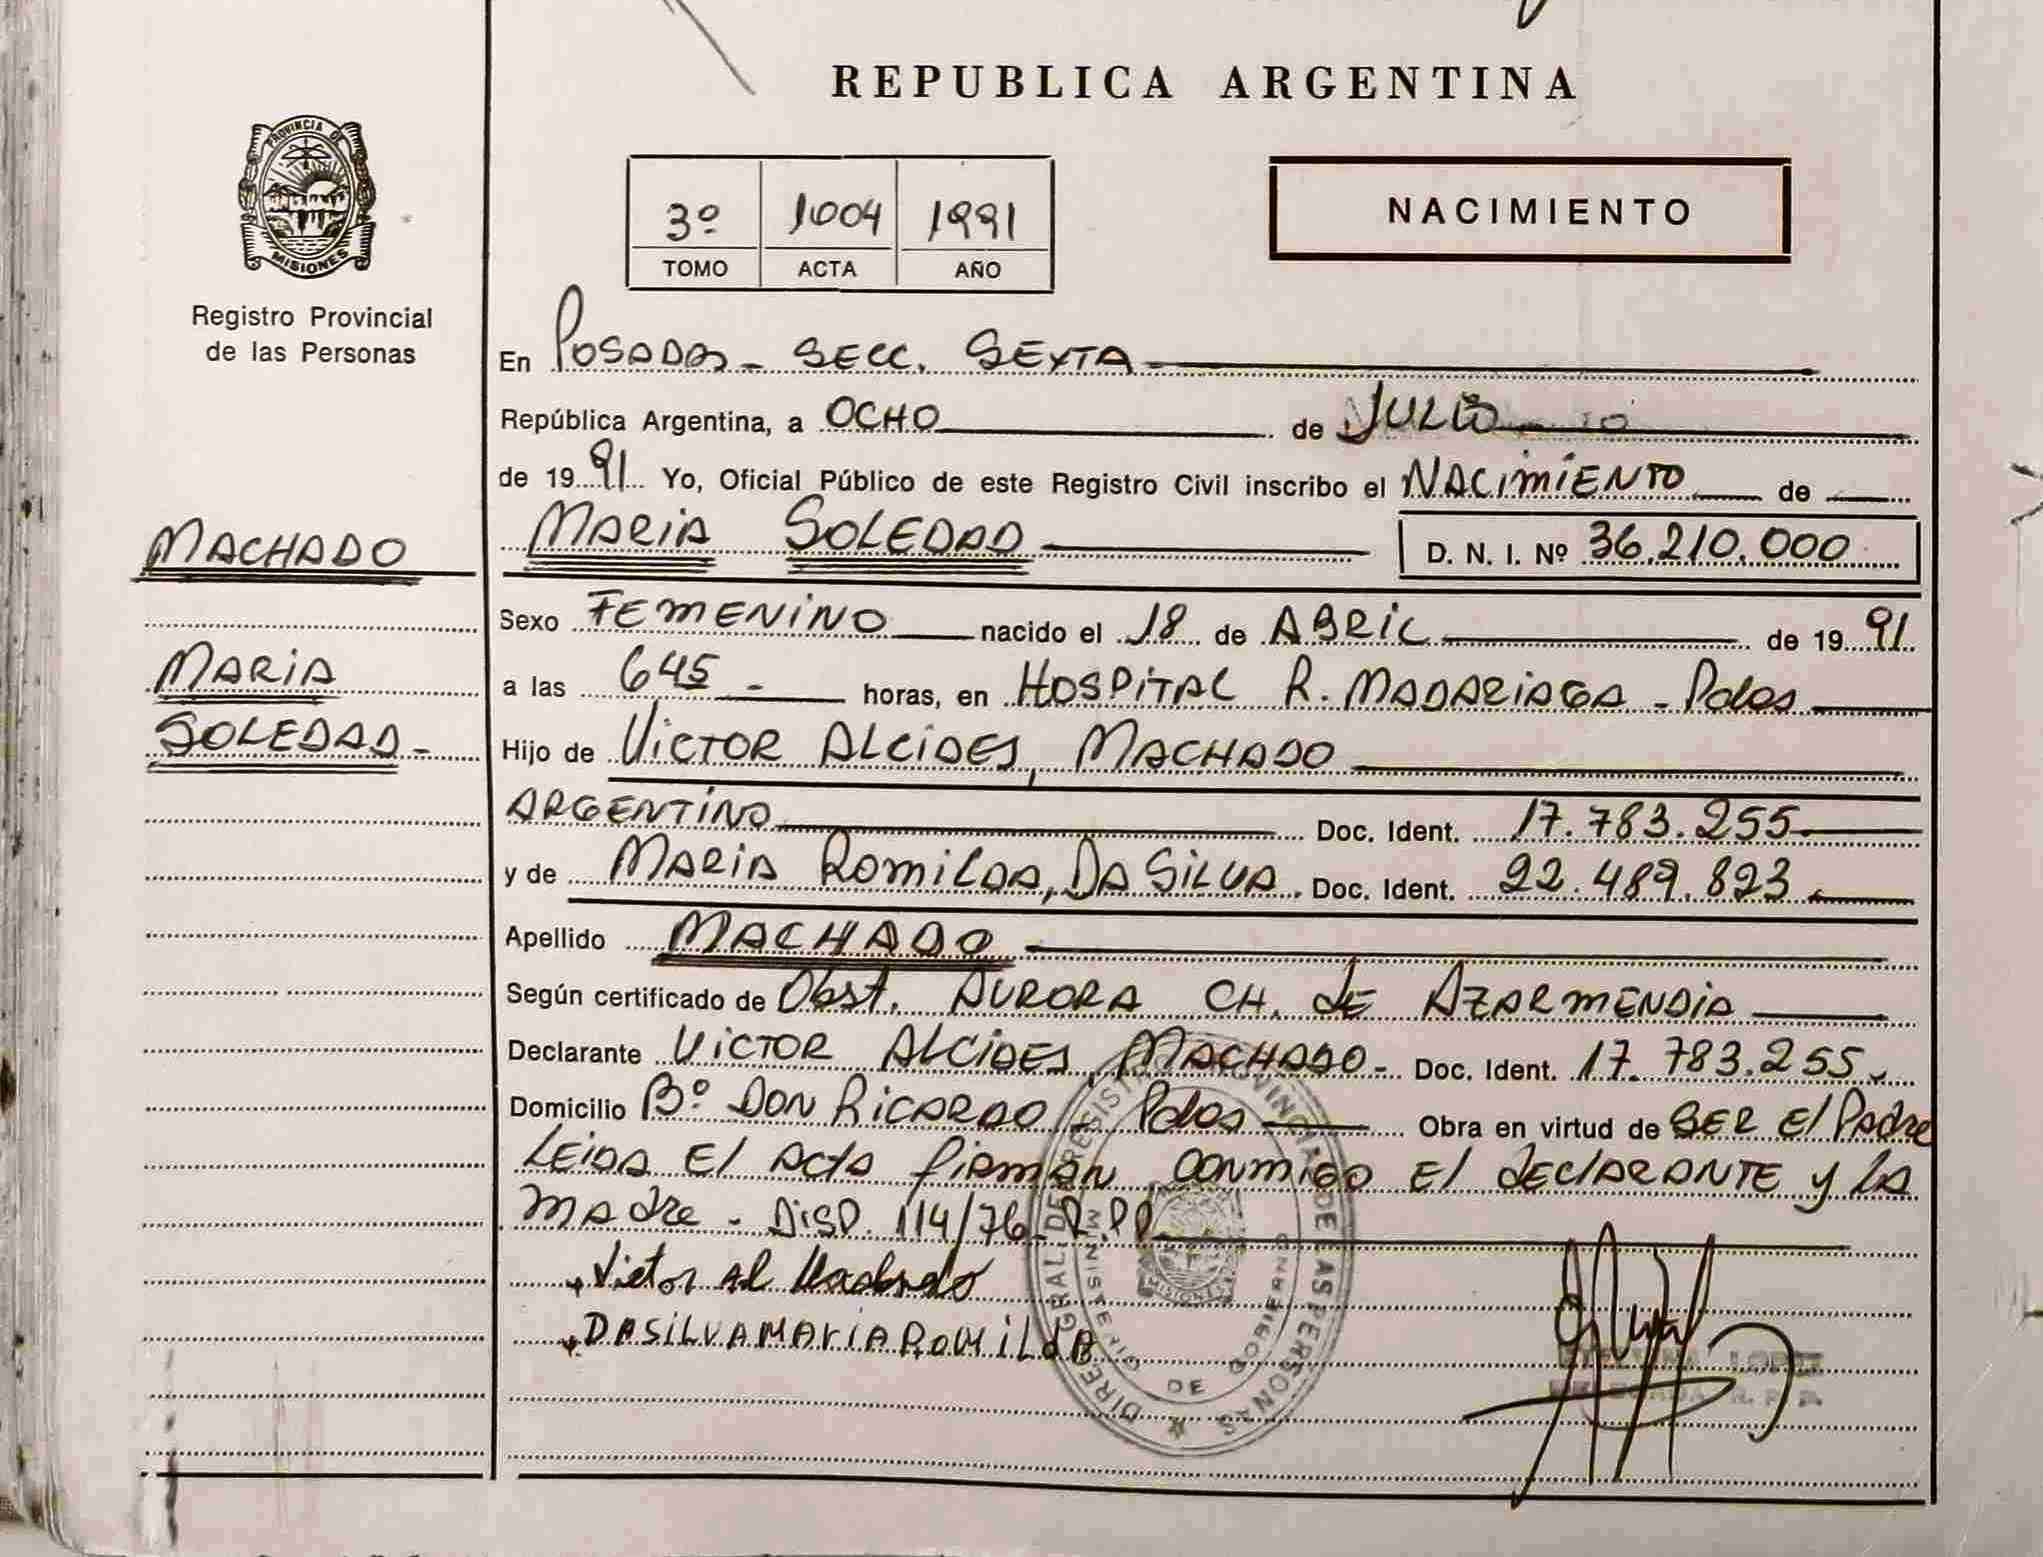 REPUBLICA ARGENTINA
PROVINCIA DE
MISIONES
Registro Provincial
de las Personas
3º 1004 1991
TOMO ACTA AÑO
NACIMIENTO
En POSADAS - SECC. SEXTA
República Argentina, a OCHO de JULIO
de 1991 Yo, Oficial Público de este Registro Civil inscribo el NACIMIENTO de
MACHADO
MARIA SOLEDAD D. N. I. Nº 36.210.000
Sexo FEMENINO nacido el 18 de ABRIL de 1991
MARIA
a las 645 - horas, en HOSPITAL R. MADARIAGA - Pdas
SOLEDAD -
Hijo de VICTOR ALCIDES, MACHADO
ARGENTINO Doc. Ident. 17.783.255
y de MARIA ROMILDA, DA SILVA. Doc. Ident. 22.489.823
Apellido MACHADO
Según certificado de Obst. AURORA CH. de AZARMENDIA
Declarante VICTOR ALCIDES, MACHADO - Doc. Ident. 17.783.255
Domicilio Bº DON RICARDO - Pdas Obra en virtud de SER El Padre
LEIDA El ACTA firman conmigo El declARANTE y LA
madre - DISP. 114/76 - R.P.P
Victor Al Machado
DASILVAMARIAROMILdA
DIREC GRAL DEL REGISTRO PROVINCIAL DE LAS PERSONAS
MINISTERIO DE GOBIERNO
MISIONES
LOPEZ
R. P. P.